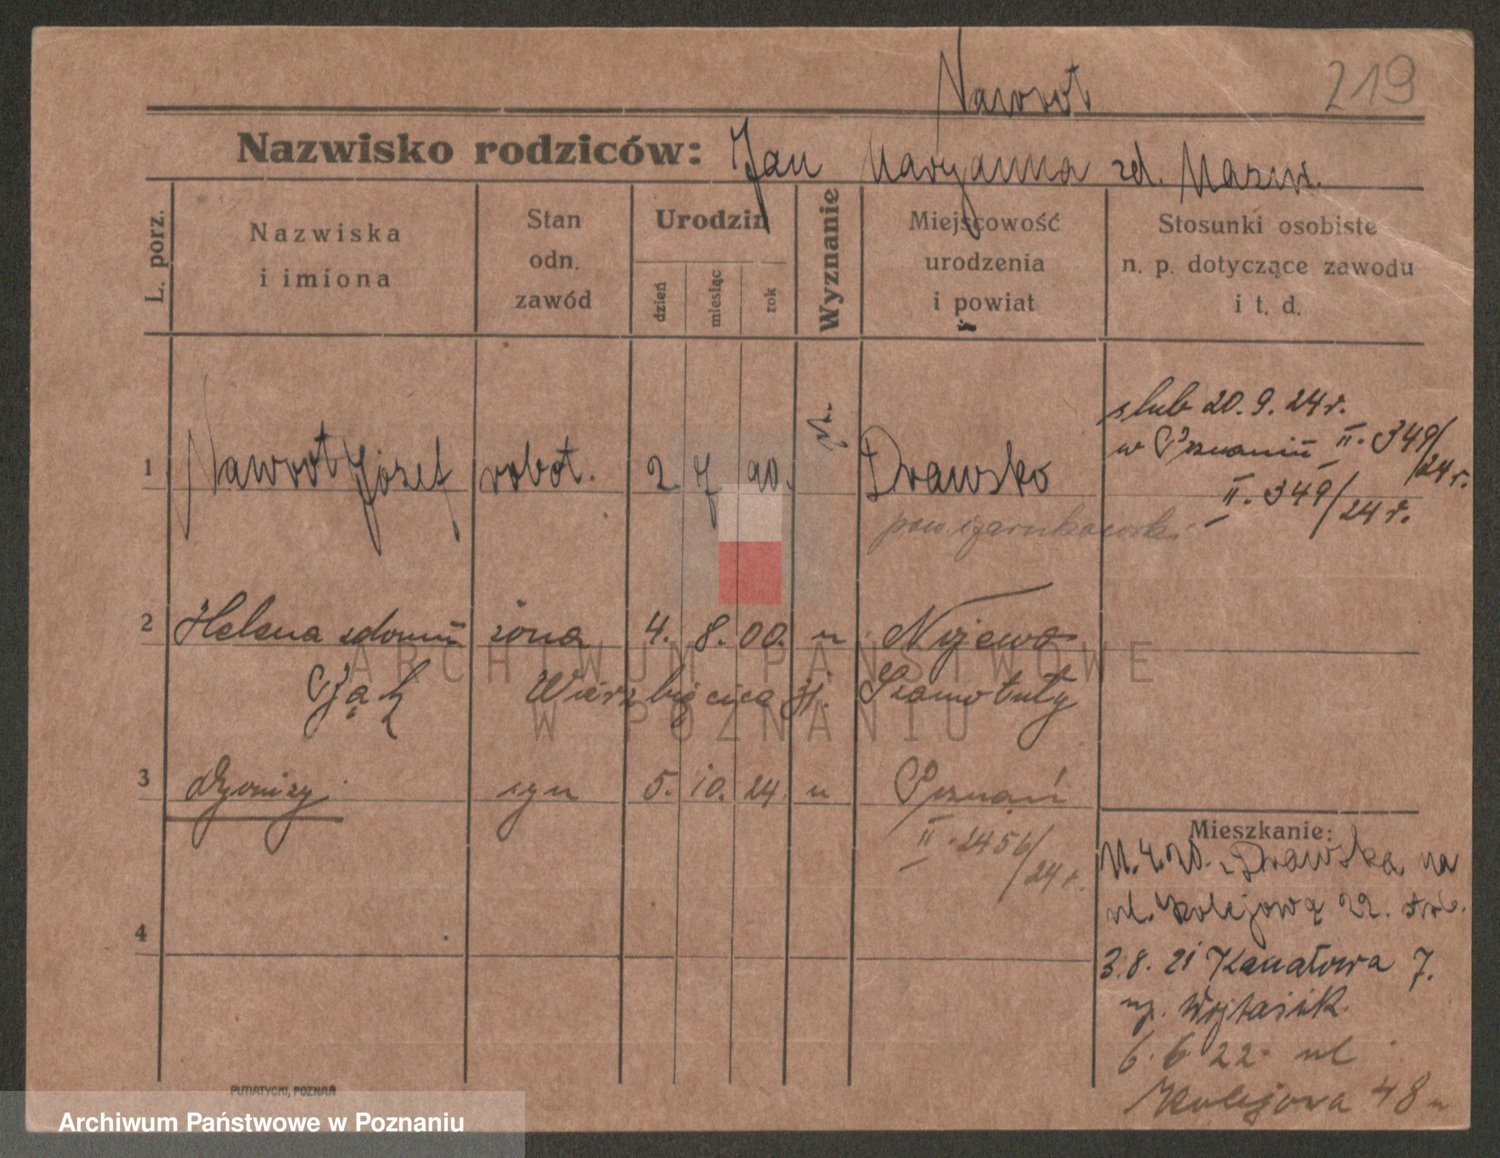 Nawrot
219
Nazwisko rodziców: Jan Maryanna zd. Mazur.
L. porz.
Nazwiska
i imiona
Stan
odn.
zawód
Urodzin
dzień
miesiąc
rok
Wyznanie
Miejscowość
urodzenia
i powiat
Stosunki osobiste
n. p. dotyczące zawodu
i t. d.
ślub 20.9.24 r.
w Poznaniu II. 349/24 r.
II. 349/24 r.
1 Nawrot Józef robot. 2 7 90. Drawsko
pow. czarnkowski
2 Helena zdomu żona 4. 8. 00. " Nojewo
Wierzbięcice 31. Szamotuły
3 Dyonizy syn 5. 10. 24. " Poznań
II. 2456/24 r.
4
Mieszkanie:
11.4.20. z Drawska na
ul. Kolejową 22.
3.8.21 Kanałowa 7.
Wojtasik.
6.6.22. ul
Kolejowa 48
PUTIATYCKI, POZNAŃ
ARCHIWUM PAŃSTWOWE
W POZNANIU
Archiwum Państwowe w Poznaniu